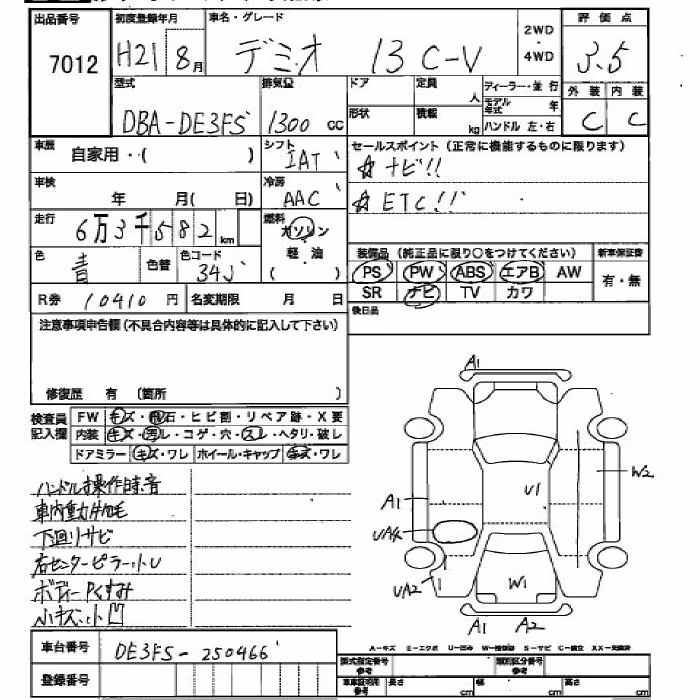 出品番号 初度登録年月 車名・グレード 2WD・4WD 評価点
7012 H21 8月 デミオ 13C-V 3.5
型式 排気量 ドア 定員 人 ディーラー・並行 外装 内装
DBA-DE3FS 1300cc 形状 積載 kg モデル年式 年 ハンドル 左・右 C C
車歴 自家用・( ) シフト IAT セールスポイント(正常に機能するものに限ります)
☆ナビ!!
車検 年 月( 日) 冷房 AAC ☆ETC!!
走行 6万3千582km 燃料 ガソリン 軽・油 ( )
色 青 色替 色コード 34J 装備品(純正品に限り○をつけてください) 新車保証書
PS PW ABS エアB AW 有・無
R券 10410円 名変期限 月 日 SR ナビ TV カワ
注意事項申告欄(不具合内容等は具体的に記入して下さい) 後日品
修復歴 有 (箇所 )
検査員記入欄 FW キズ・飛石・ヒビ割・リペア跡・X要
内装 キズ・汚レ・コゲ・穴・スレ・ヘタリ・破レ
ドアミラー キズ・ワレ ホイール・キャップ キズ・ワレ
ハンドル操作時音
下回りサビ
右センターピラー小U
ボディーPくすみ
小キズ小凹
A1
W2
U1
A1
UA2
1
W1
A1 A2
車台番号 DE3FS-250466
A-キズ M-エクボ U-凹ミ W-補修跡 S-サビ C-腐食 XX-交換済
登録番号 型式指定番号 参考 類別区分番号 参考
車庫証明用 参考 長さ cm 幅 cm 高さ cm